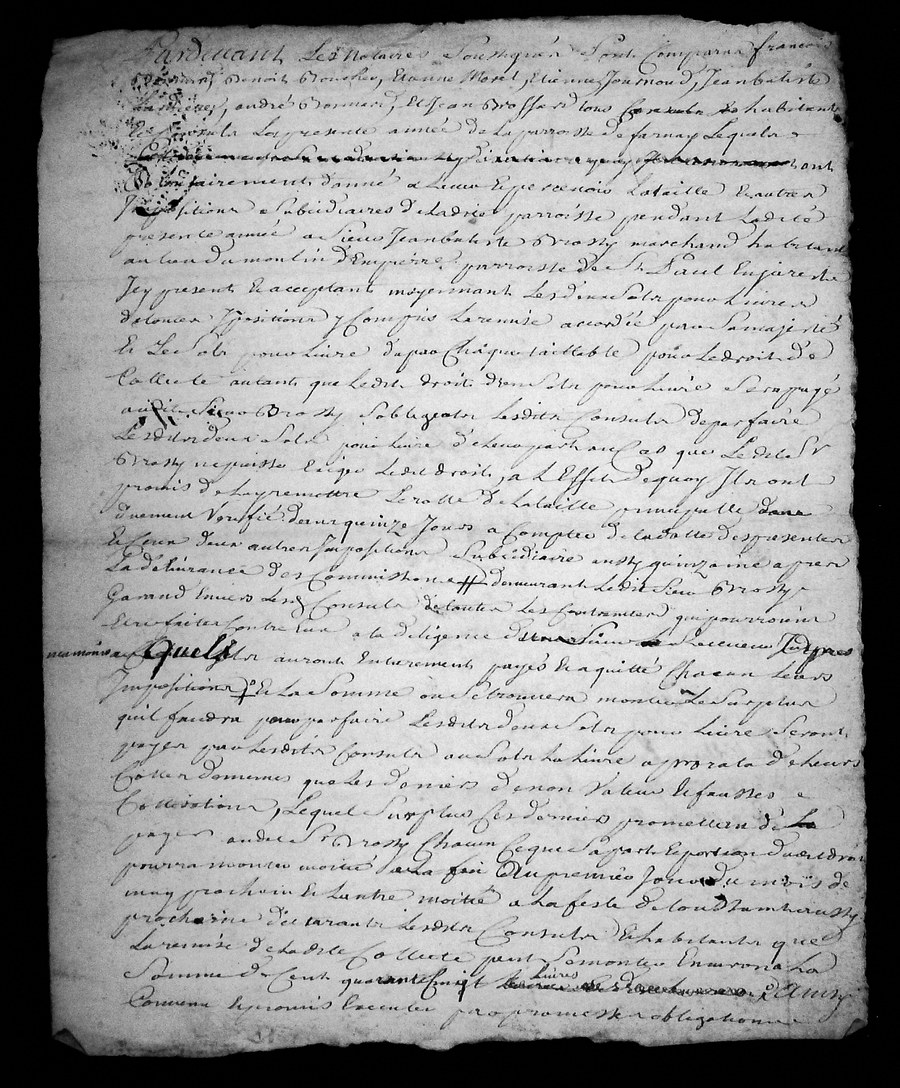 Pardevant Les Notaires Soussignés Sont Comparus francois
Benoit Bouchu, Etienne Morel, Etienne Journoud, Jeanbatiste
andré Bonnard, Et Jean Brossard tous Consuls & habitants
Et Consuls La presente année de La parroisse de farnay Lesquels
ont
Volontairement donné a Lever Et percevoir La taille Et autres
Jmpositions Subcidiaires de Ladite parroisse pendant Ladite
presente année a Sieur Jeanbatiste Brossy marchand habitant
au Lieu du moulin d'Empierre parroisse de St Paul En jarest
Jcy present Et acceptant moyennant Les deux Sols pour Livre
de toutes Jpositions y Compris La remise accordée par Sa majesté
Et Les Sols pour Livre dûs par Chaque taillable pour Le droit de
Collecte autant que Ledit droit d'un Sols pour Livre Sera payé
audit Sieur Brossy S'obligeants Lesdits Consuls de parfaire
Lesdits deux Sols pour Livre de Leur part au Cas que Ledit Sr
Brossy ne puisse Exiger Ledit droit, a L'Effet de quoy Jls ont
promis de Luy remettre Le rolle de La taille principalle
duement Verifié dans quinze Jours a Compter de La datte des presentes
Et Ceux des autres Jmpositions Subcidiaires aussy quinzaine apres
La delivrance des Commissions # demeurant Ledit Sieur Brossy
Garand Envers Lesd Consuls de toutes Les Contraintes qui pourroient
Etre faites Contre Eux a la diligence du Sieur Receveur Lesdits
Quels auront Entierement payés Et aquitté Chacun Leurs
Jmpositions Et La Somme ou Se trouvera monter Le Surplus
quil faudra pour parfaire Lesdits deux Sols pour Livre Seront
payés par Lesdits Consuls au Sols La Livre a prorata de Leurs
Cottes de mêmes que Les deniers de non Valeur Et fausses
Cottisations, Lequel Surplus Ces derniers promettent de
payer audit Sr Brossy Chacun Ce que Sa part Et portion dudit droit
pourra monter moitié a La fin Au premier Jour du mois de
may prochain Et L'autre moitié a La feste de toussaint aussy
prochaine declarants Lesdits Consuls Et habitants que
La remise de Ladite Collecte peut Se monter Environ a La
Somme de Cent quarante huit Livres Ainsy
Convenu Et promis Executer par promesse obligations